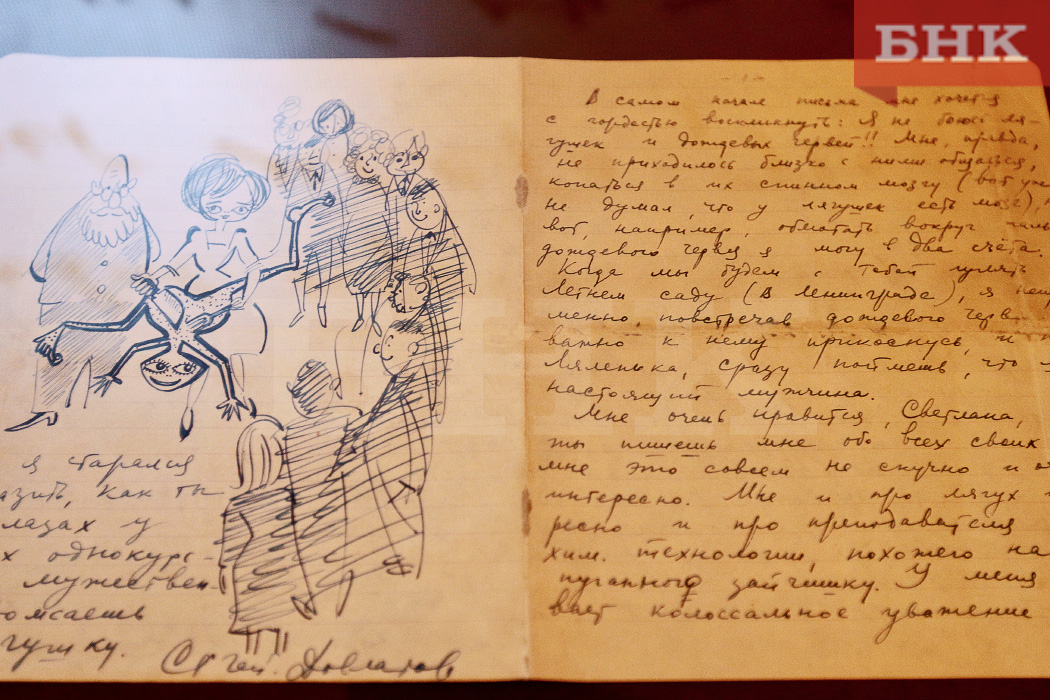 БНК
я старался
азить, как ты
глазах у
х однокурс-
мужествен-
омсаешь
гушку.
Сергей Довлатов
В самом начале письма мне хочется
с гордостью воскликнуть: Я не боюсь ля-
гушек и дождевых червей!! Мне, правда,
не приходилось близко с ними общаться,
копаться в их спинном мозгу (вот уж
не думал, что у лягушек есть мозг),
вот, например, обмотать вокруг
дождевого червя я могу в два счёта.
Когда мы будем с тобой гулять
Летнем саду (в Ленинграде), я неп
менно, повстречав дождевого черв
важно к нему прикоснусь, и
Ляленька, сразу поймешь, что
настоящий мужчина.
Мне очень нравится, Светлана,
ты пишешь мне обо всех своих
мне это совсем не скучно и
интересно. Мне и про лягух
ресно и про преподавателя
хим. технологии, похожего на
пуганного зайчишку. У меня
вает колоссальное уважение